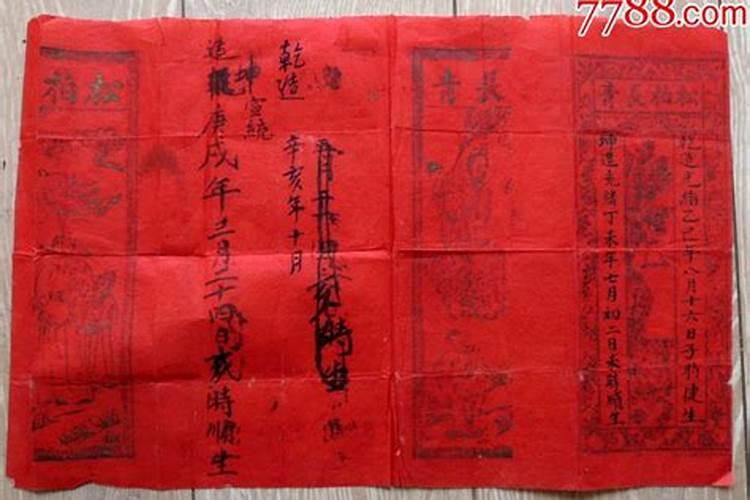 7788.com
松柏長青
乾造光緒乙巳年八月十六日子時健生
坤造光緒丁未年七月初二日未時順生
長青
乾造
辛亥年十月
時生
坤宣統
造庚戌年三月二十四日時順生
松柏